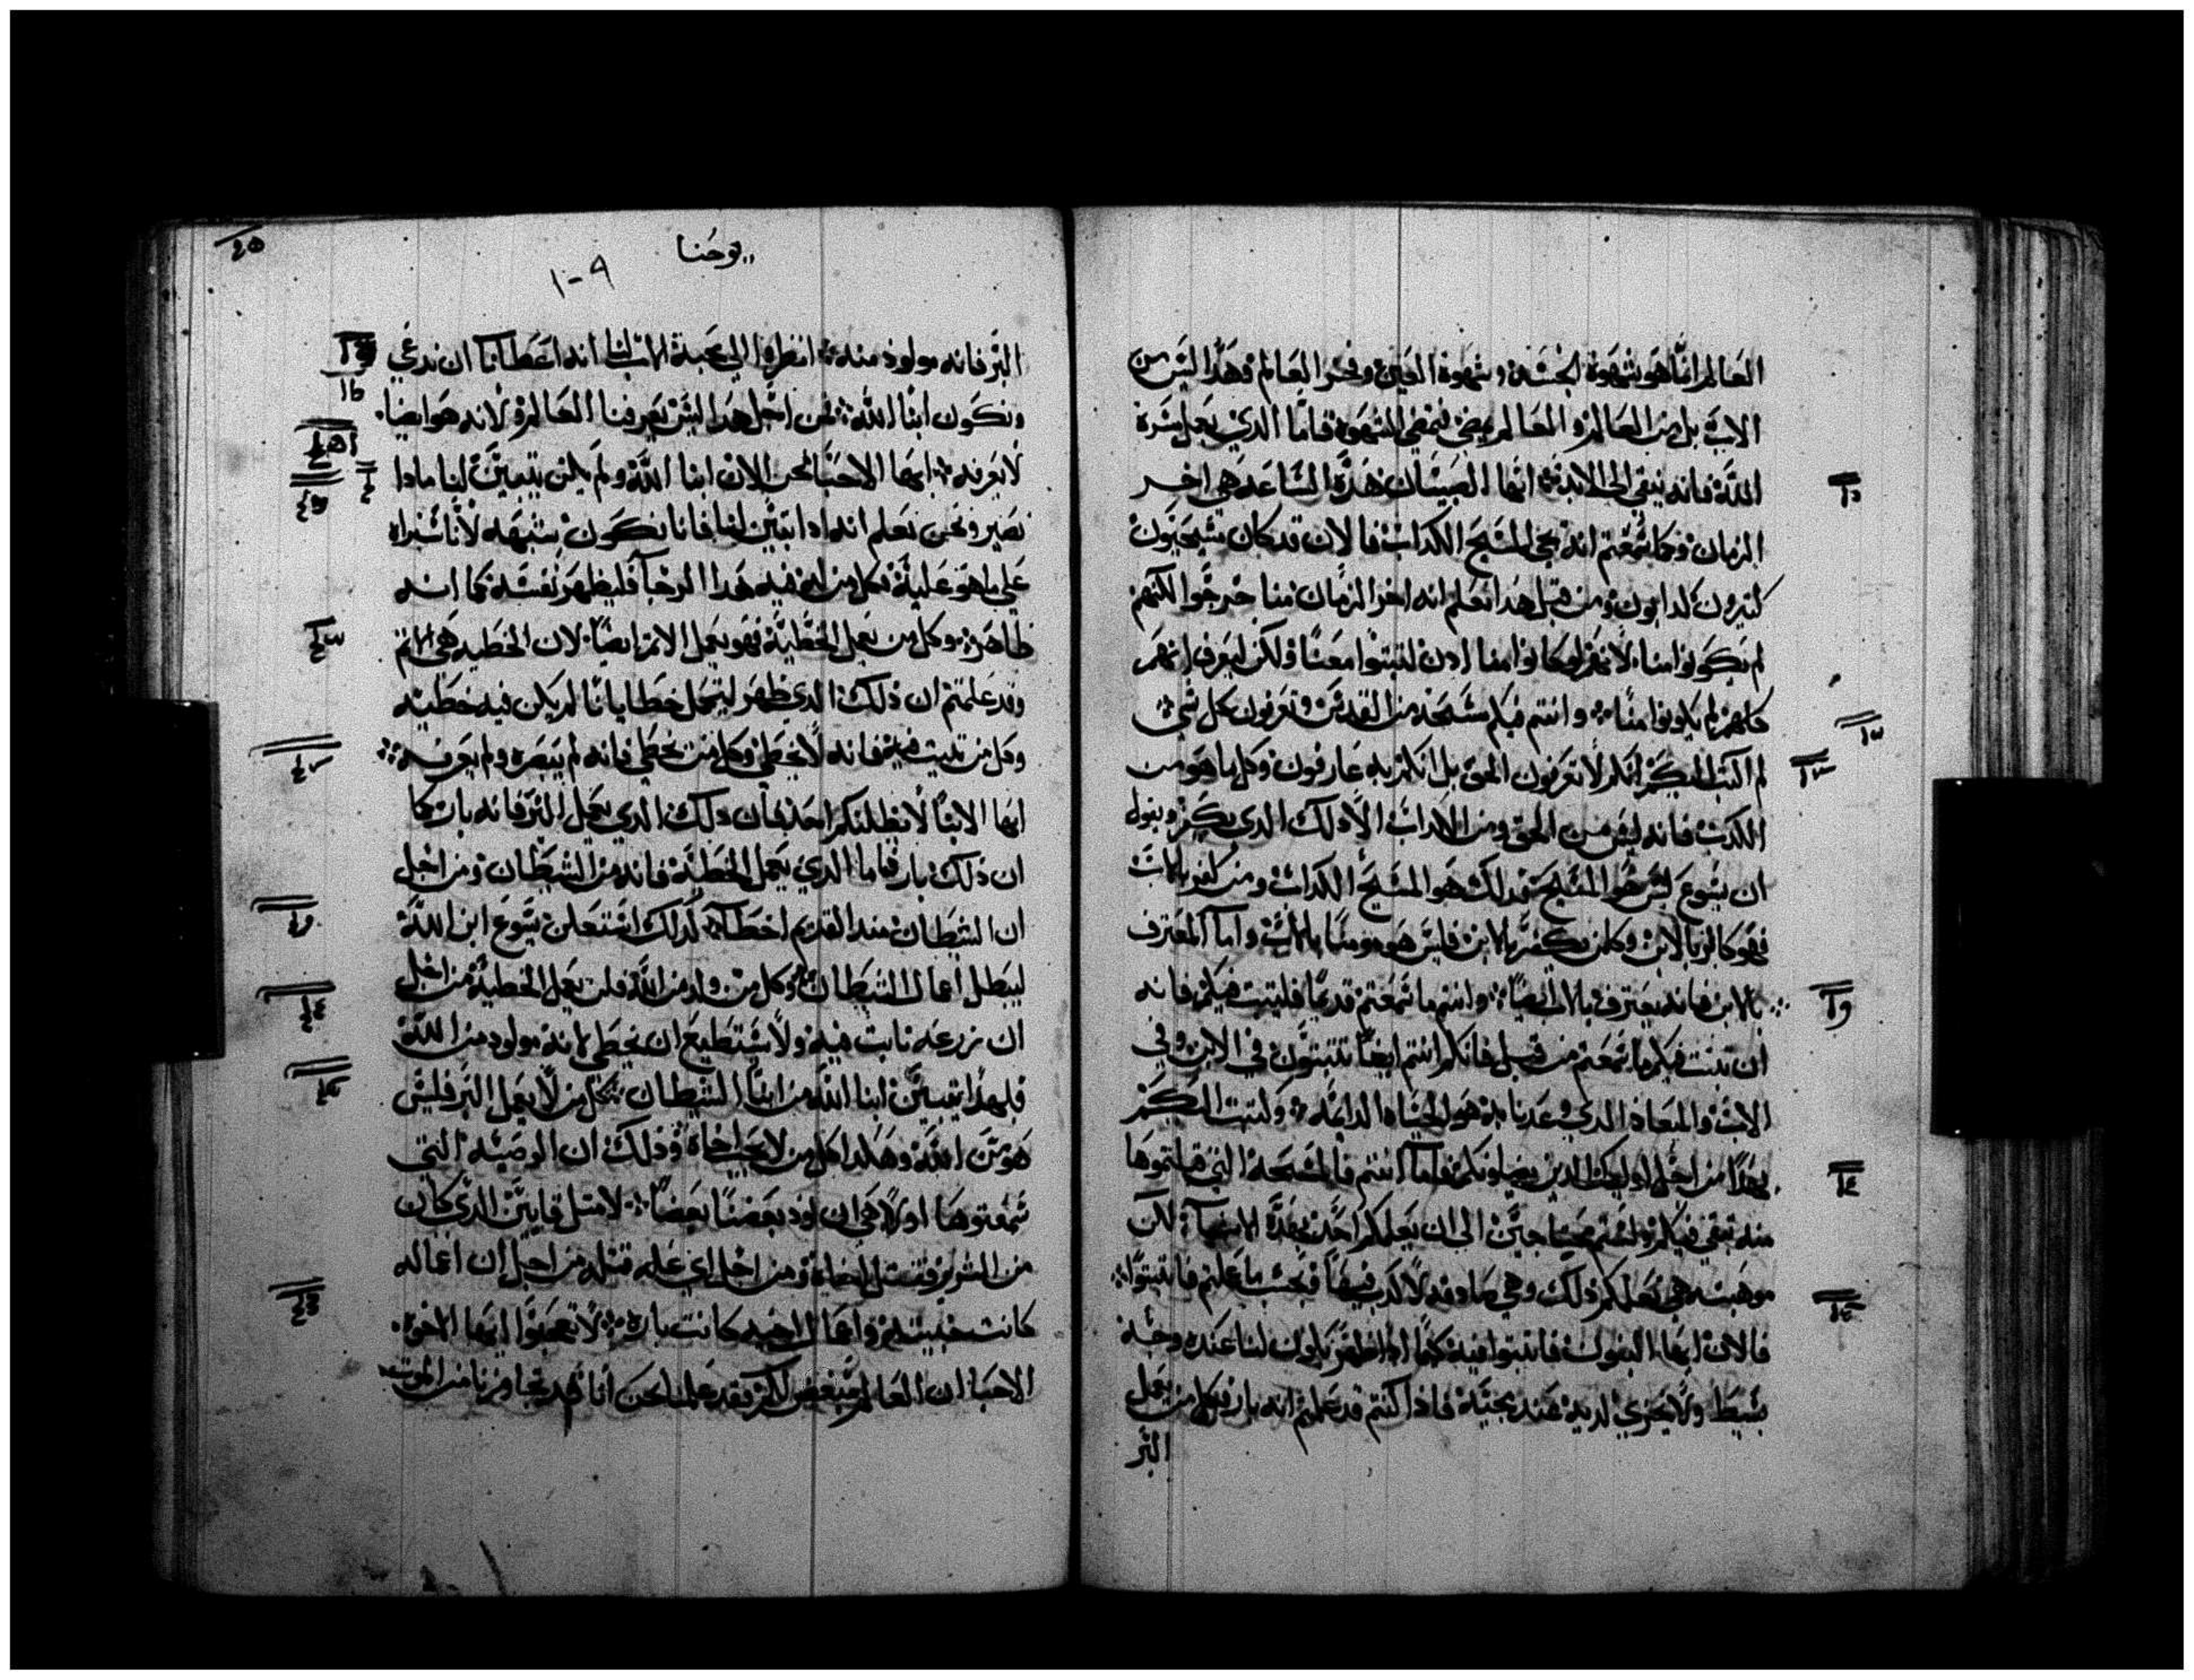 العالم انما هو شهوة الجسد وشهوة العين وفخر العالم وهذا ليس من
الاب بل من العالم والعالم يمضي وتمضي الشهوة فاما الذي يعمل مسرة
الله فانه يبقى الى الابد ايها الصبيان هذه الساعة هي اخر
الزمان وكما سمعتم انه يجي المسيح الكداب فالان قد كان مسيحيون
كتيرون كدابون ومن قبل هدا نعلم انه اخر الزمان مننا خرجوا لكنهم
لم يكونوا منا لانهم لو كانوا منا ادن لتبتوا معنا ولكن ليعرف انهم
كلهم لم يكونوا منا وانتم فيكم مسحه من القدس وتعرفون كل شي
لم اكتب اليكم انكم لا تعرفون الحق بل انكم به عارفون وكل ما هو من
الكدب فانه ليس من الحق ومن الكداب الا دلك الدي يكفر ويقول
ان يسوع ليس هو المسيح فدلك هو المسيح الكداب ومن كفر بالاب
فهو كافر بالابن وكل من يكفر بالابن فليس هو مومنا بالاب واما المعترف
بالابن فانه يعترف بالاب ايضا وانتم ما سمعتم قديما فليتبت فيكم فانه
ان تبت فيكم ما سمعتم من قبل فانكم انتم ايضا تتبتون في الابن وفي
الاب والميعاد الدي وعدنا به هو الحياه الدايمه وكتبت اليكم
بهدا من اجل اوليك الدين يضلونكم فاما انتم فالمسحه التي قبلتموها
منه تبقى فيكم ولستم محتاجين الى ان يعلمكم احد بهده الاشيا لكن
موهبته هي تعلمكم دلك وهي صادقه لا كدب فيها فبحسب ما علمتم فاتبتوا
فالان ايها البنون فاتبتوا فيه كما ادا ظهر يكون لنا عنده وجه
بسيط ولا نخزي لديه عند مجيه فادا كنتم قد علمتم انه بار فكل من يعمل
البر
٤٥
يوحنا
١-٩
البر فانه مولود منه انظروا الى محبة الاب لنا انه اعطانا ان ندعي
ونكون ابنا الله من اجل هدا ليس يعرفنا العالم لانه هو ايضا
لا يعرفه ايها الاحبا نحن الان ابنا الله ولم يكن يتبين لنا مادا
نصير ونحن نعلم انه ادا تبين لنا فانا نكون بشبهه لانا سنراه
على ما هو عليه فكل من له فيه هدا الرجا فليطهر نفسه كما انه
طاهر وكل من يعمل الخطية فهو يعمل الاتم ايضا لان الخطيه هي الاتم
وقد علمتم ان دلك الدي ظهر ليتحمل خطايانا لم يكن فيه خطيه
وكل من تبت فيه فانه لا يخطي وكل من يخطي فانه لم يبصره ولم يعرفه
ايها الابنا لا يظلنكم احد فان دلك الدي يعمل البر فانه بار كما
ان دلك بار فاما الدي يعمل الخطية فانه من الشيطان ومن اجل
ان الشيطان مند القديم اخطا لدلك استعلن يسوع ابن الله
ليبطل اعمال الشيطان وكل من ولد من الله فلن يعمل الخطية من اجل
ان زرعه تابت فيه ولا يستطيع ان يخطي لانه مولود من الله
فلهدا يتبين ابنا الله من ابنا الشيطان فكل من لا يعمل البر فليس
هو من الله وهكدا كل من لا يحب اخاه ودلك ان الوصيه التي
سمعتوها اولا هي ان نود بعضنا بعضا لا متل قايين الدي كان
من الشرير فقتل اخاه ومن اجل اي عله قتله من اجل ان اعماله
كانت خبيته واعمال اخيه كانت باره لا تعجبوا ايها الاخوه
الاحبا ان العالم يبغضكم فقد علمنا نحن انا قد تجاوزنا من الموت